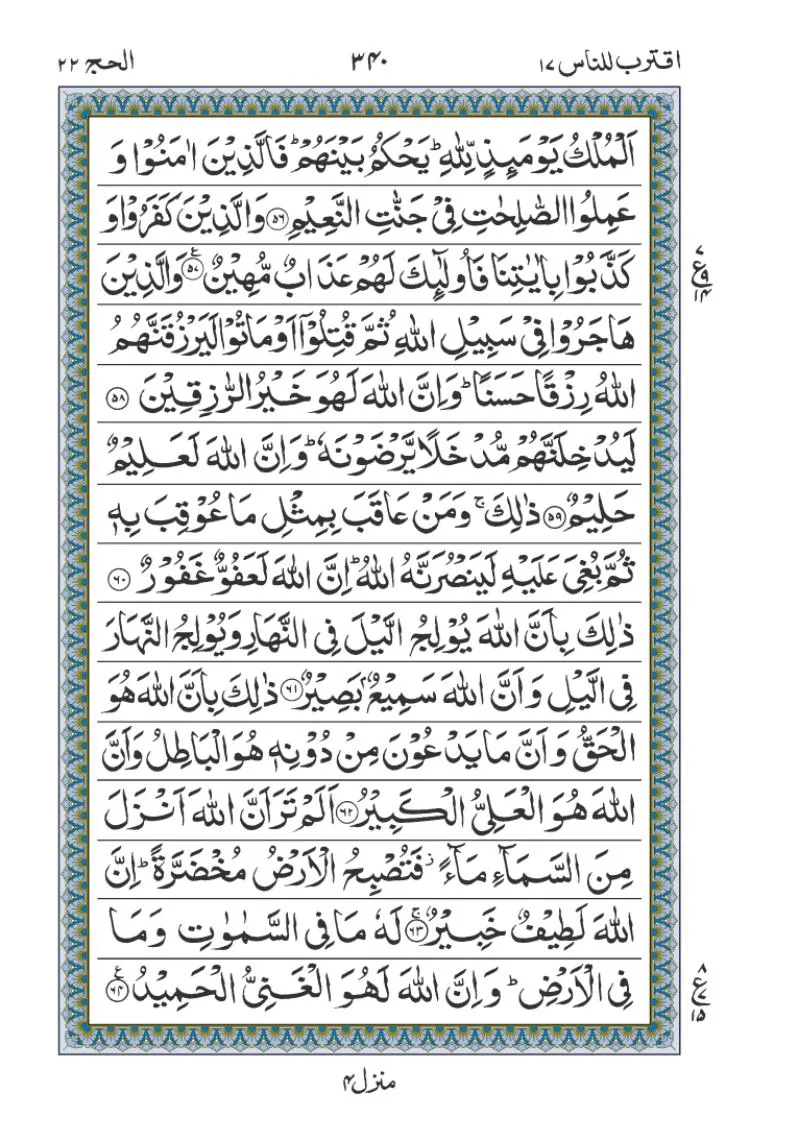 اقترب للناس ١٧
٣٤٠
الحج ٢٢
اَلْمُلْكُ يَوْمَىِٕذٍ لِّلّٰهِ ؕ یَحْكُمُ بَیْنَهُمْ ؕ فَالَّذِیْنَ اٰمَنُوْا وَ
عَمِلُوا الصّٰلِحٰتِ فِیْ جَنّٰتِ النَّعِیْمِ ۝۵۶ وَالَّذِیْنَ كَفَرُوْا وَ
كَذَّبُوْا بِاٰیٰتِنَا فَاُولٰٓىِٕكَ لَهُمْ عَذَابٌ مُّهِیْنٌ ۝۵۷ ع وَالَّذِیْنَ
٧
ع ٩
١٤
هَاجَرُوْا فِیْ سَبِیْلِ اللّٰهِ ثُمَّ قُتِلُوْۤا اَوْ مَاتُوْا لَیَرْزُقَنَّهُمُ
اللّٰهُ رِزْقًا حَسَنًا ؕ وَاِنَّ اللّٰهَ لَهُوَ خَیْرُ الرّٰزِقِیْنَ ۝۵۸
لَیُدْخِلَنَّهُمْ مُّدْخَلًا یَّرْضَوْنَهٗ ؕ وَاِنَّ اللّٰهَ لَعَلِیْمٌ
حَلِیْمٌ ۝۵۹ ذٰلِكَ ۚ وَمَنْ عَاقَبَ بِمِثْلِ مَا عُوْقِبَ بِهٖ
ثُمَّ بُغِیَ عَلَیْهِ لَیَنْصُرَنَّهُ اللّٰهُ ؕ اِنَّ اللّٰهَ لَعَفُوٌّ غَفُوْرٌ ۝۶۰
ذٰلِكَ بِاَنَّ اللّٰهَ یُوْلِجُ الَّیْلَ فِی النَّهَارِ وَیُوْلِجُ النَّهَارَ
فِی الَّیْلِ وَاَنَّ اللّٰهَ سَمِیْعٌۢ بَصِیْرٌ ۝۶۱ ذٰلِكَ بِاَنَّ اللّٰهَ هُوَ
الْحَقُّ وَاَنَّ مَا یَدْعُوْنَ مِنْ دُوْنِهٖ هُوَ الْبَاطِلُ وَاَنَّ
اللّٰهَ هُوَ الْعَلِیُّ الْكَبِیْرُ ۝۶۲ اَلَمْ تَرَ اَنَّ اللّٰهَ اَنْزَلَ
مِنَ السَّمَآءِ مَآءً ؗ فَتُصْبِحُ الْاَرْضُ مُخْضَرَّةً ؕ اِنَّ
اللّٰهَ لَطِیْفٌ خَبِیْرٌ ۝۶۳ ۚ لَهٗ مَا فِی السَّمٰوٰتِ وَمَا
فِی الْاَرْضِ ؕ وَاِنَّ اللّٰهَ لَهُوَ الْغَنِیُّ الْحَمِیْدُ ۝۶۴ ع
٨
ع ٧
١٥
منزل ۴